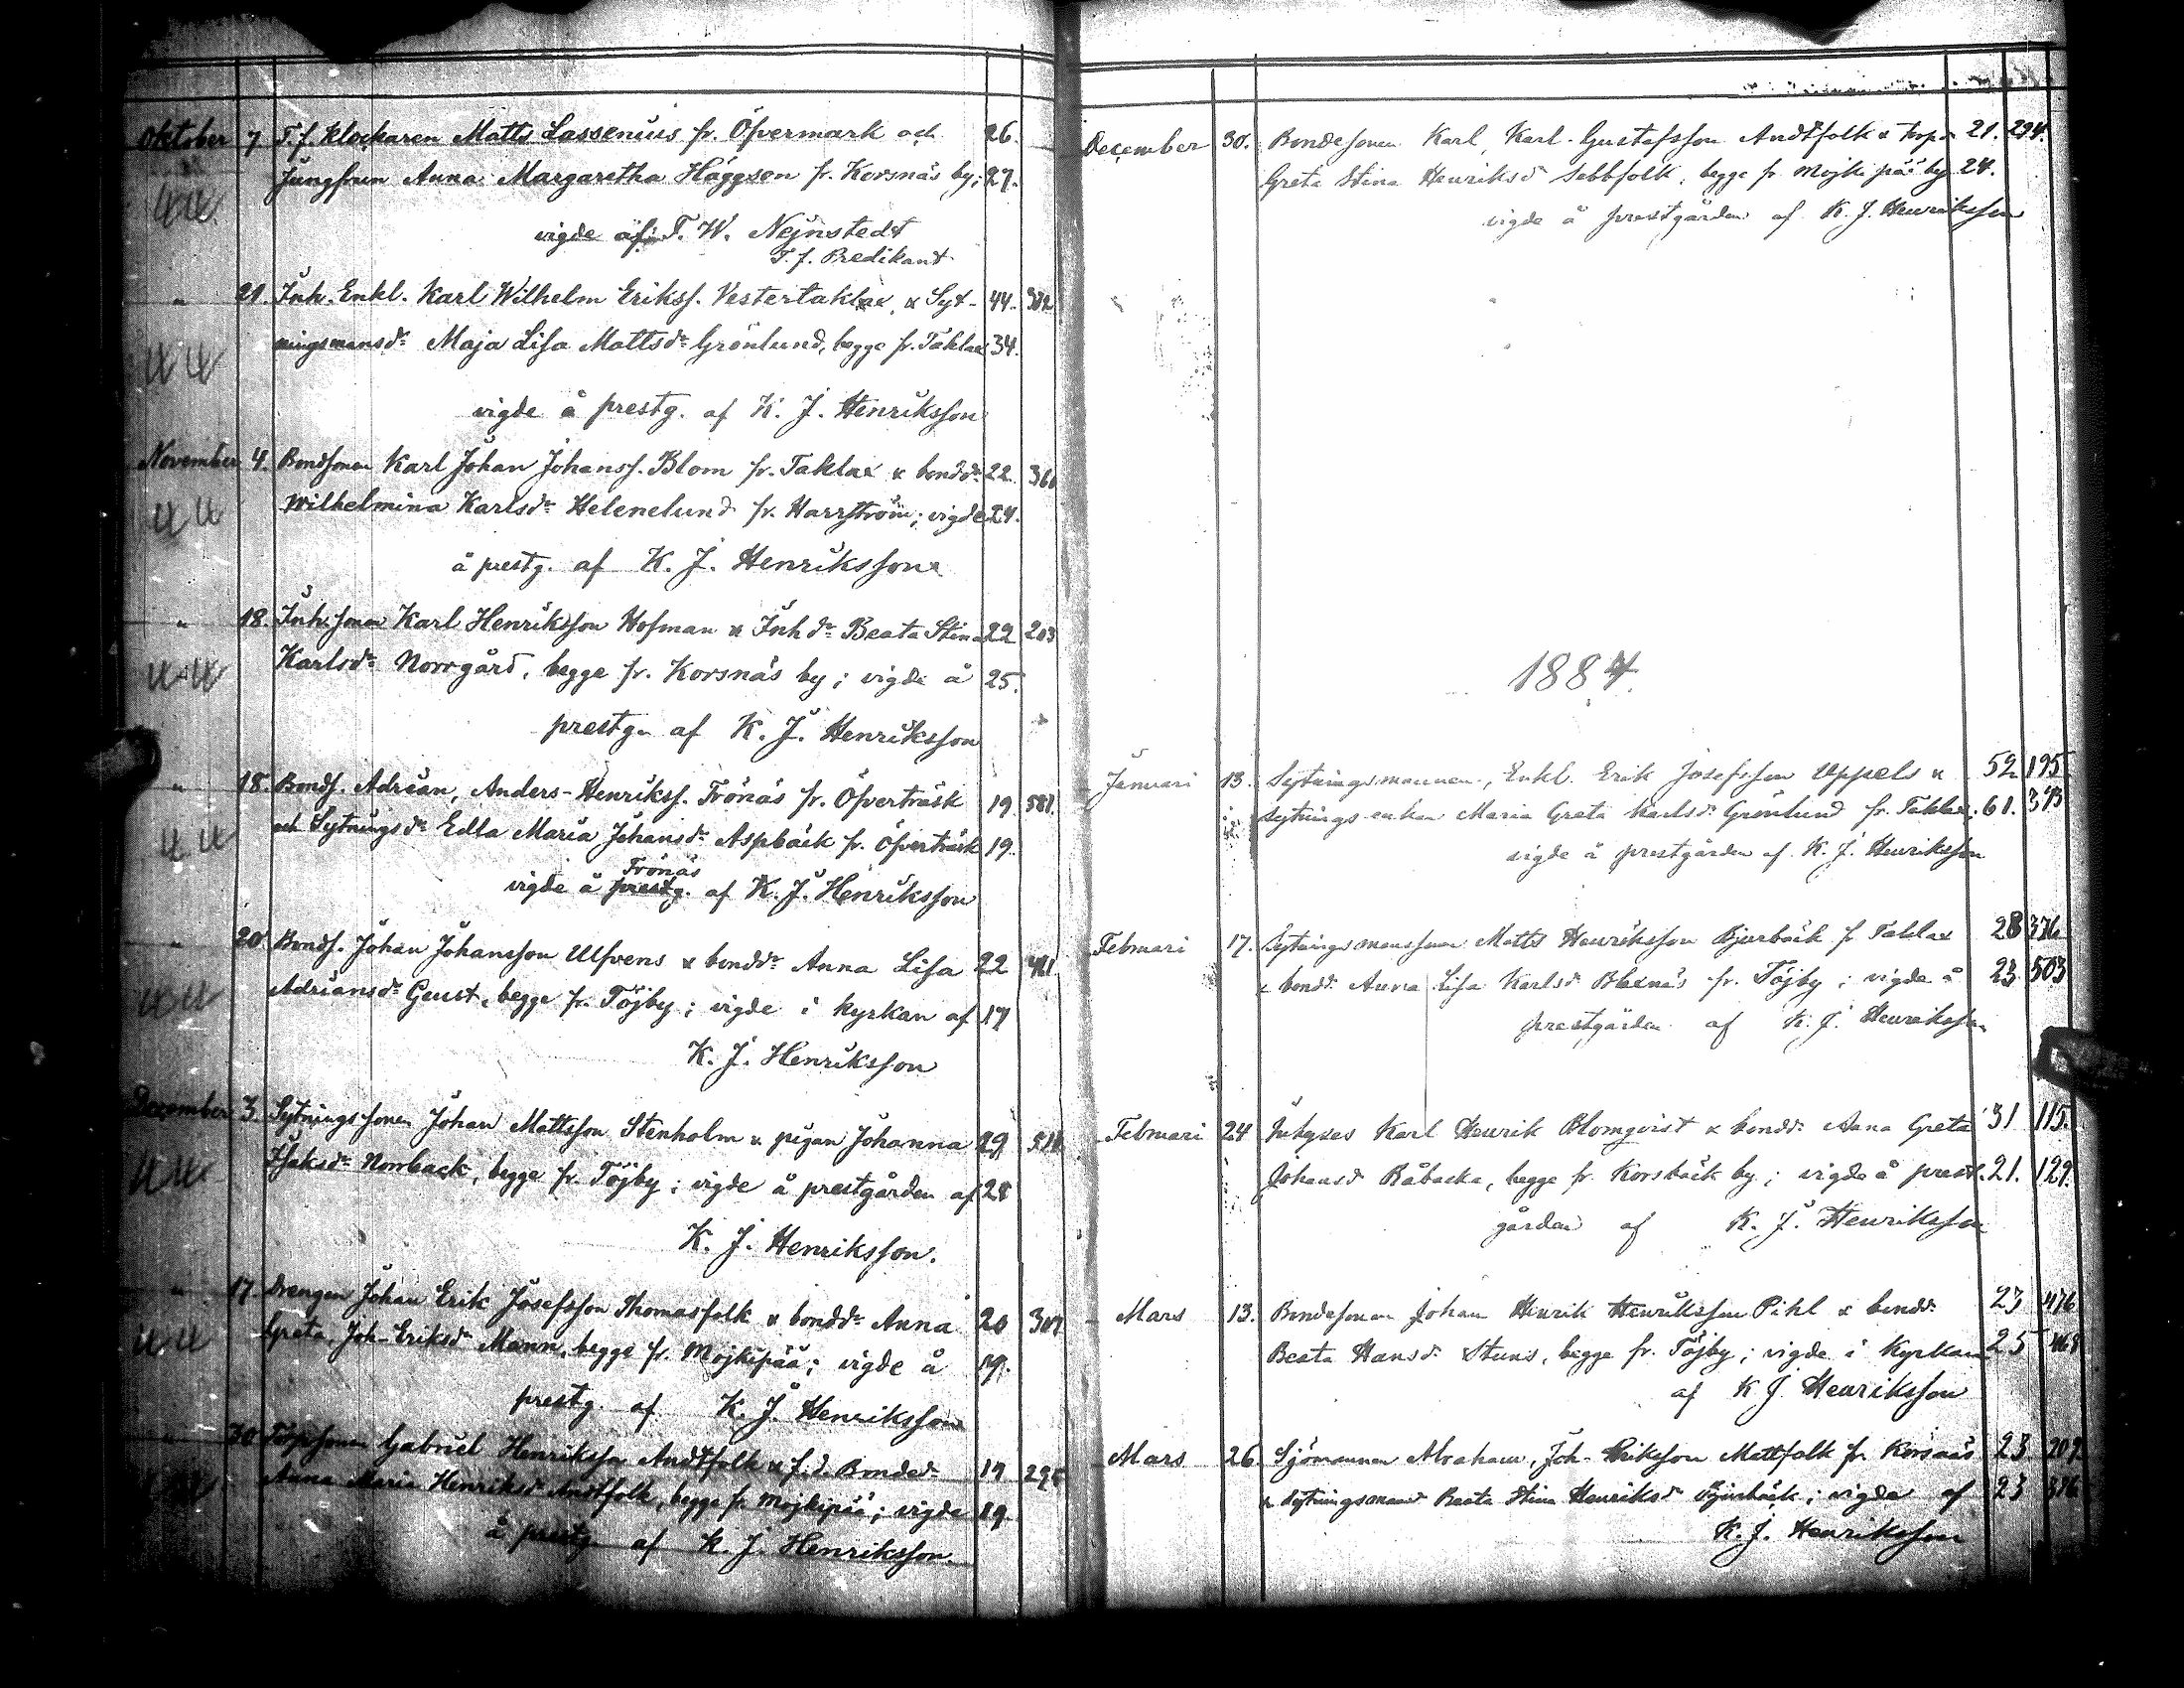 Oktober 7 T. f. klockaren Matts Lassenius fr. Öfvermark och 26.
Jungfrun Anna Margaretha Häggson fr. Korsnäs by; 27.
vigde af T. W. Nejnstedt
T. f. Predikant
" 21. Inh. Enkl. Karl Wilhelm Erikss. Vestertaklax, & Syt- 44. 382
ningsmansdr Maja Lisa Mattsdr Grönlund, begge fr. Taklax 34.
vigde å prestg. af K. J. Henriksson
November 4. Bondsonen Karl Johan Johanss. Blom fr. Taklax & bonddr 22. 360
Wilhelmina Karlsdr Helenelund fr. Harrström; vigde 24.
å prestg. af K. J. Henriksson
" 18. Inh. sonen Karl Henriksson Hofman & Inhdr Beata Stina 22 203
Karlsdr Norrgård, begge fr. Korsnäs by; vigde å 25.
prestg. af K. J. Henriksson
" 18. Bonds. Adrian, Anders-Henrikss. Trönäs fr. Öfverträsk 19. 581.
och Sytningsdr Edla Maria Johansdr Aspbäck fr. Öfverträsk 19.
Trönäs
vigde å prestg. af K. J. Henriksson
" 20 Bonds. Johan Johansson Ulfvens & bonddr Anna Lisa 22 421
Adriansdr Geust, begge fr. Töjby; vigde i kyrkan af 17
K. J. Henriksson
December 3. Sytningssonen Johan Mattsson Stenholm & pigan Johanna 29
Isaksdr Norrback, begge fr. Töjby; vigde å prestgården af 28
K. J. Henriksson.
" 17. Drengen Johan Erik Josefsson Thomasfolk & bonddr Anna 20
Greta Joh-Eriksdr Mann, begge fr. Mojkipää; vigde å 19.
prestg. af K. J. Henriksson
" 30 Torpsonen Gabriel Henriksson Andtfolk & f.d. Bondedr 19 295
Anna Maria Henriksdr Andtfolk, begge fr. Mojkipää; vigde 19.
å prestg. af K. J. Henriksson
December 30. Bondesonen Karl, Karl-Gustafsson Andtfolk & torpdr 21. 294.
Greta Stina Henriksdr Sebbfolk, begge fr. Mojkipää by 24.
vigde å prestgården af K. J. Henriksson
1884.
Januari 13. Sytningsmannen, Enkl. Erik Josefsson Uppels & 52 195
sytningsenkan Maria Greta Karlsdr Grönlund fr. Taklax; 61. 373
vigde å prestgården af K. J. Henriksson
Februari 17. Sytningsmanssonen Matts Henriksson Bjurbäck fr. Taklax 28 376
& bonddr Anna Lisa Karlsdr Blaxnäs fr. Töjby; vigde å 23 503
prestgården af K. J. Henriksson
Februari 24 Inhyses Karl Henrik Blomqvist & bonddr Anna Greta 31 115.
Johansd. Båbacka, begge fr. Korsbäck by; vigde å prest- 21. 129.
gården af K. J. Henriksson
Mars 13. Bondesonen Johan Henrik Henriksson Pihl & bonddr 23 476
Beata Hansdr Stuns, begge fr. Töjby; vigde i Kyrkan 25 468
af K. J. Henriksson
Mars 26 Sjömannen Abraham, Joh-Eriksson Mattfolk fr. Korsnäs 23 209.
& sytningsmansdr Beata Stina Henriksdr Bjurbäck; vigde af 23 376
K. J. Henriksson